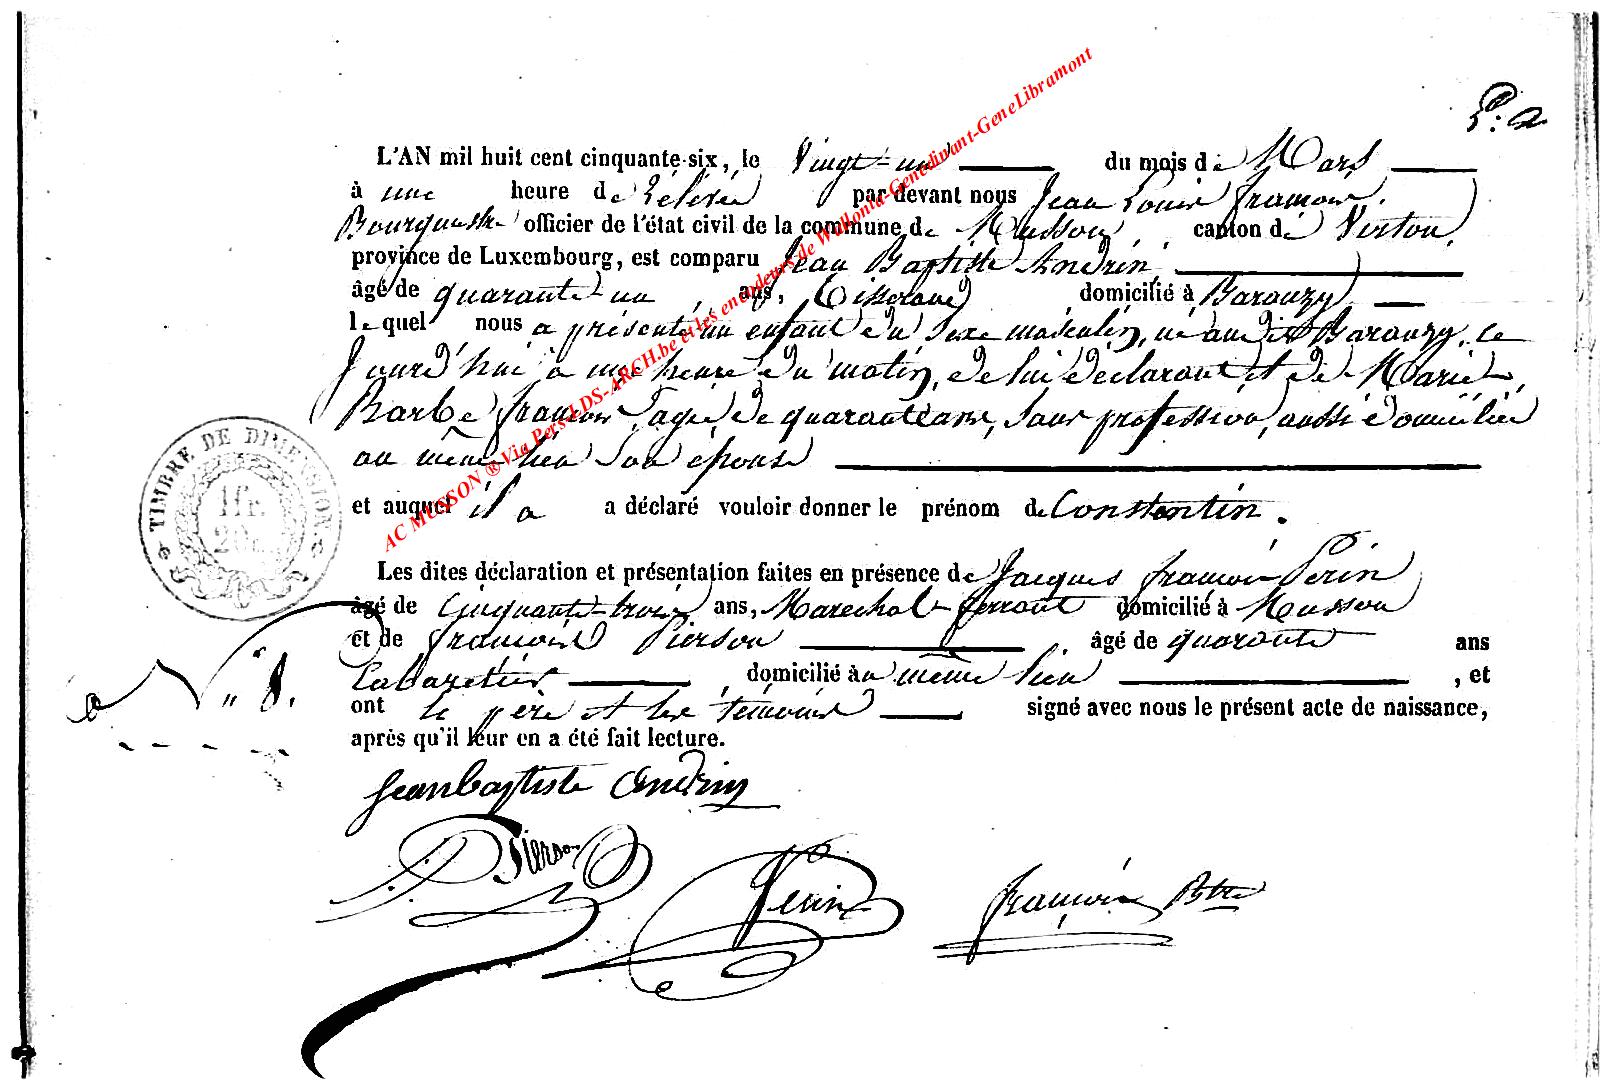 P: 2
L'AN mil huit cent cinquante-six, le Vingt-un du mois de Mars
à une heure de relevée par devant nous Jean Louis françois,
Bourgmestre officier de l'état civil de la commune de Musson, canton de Virton,
province de Luxembourg, est comparu Jean Baptiste Andrin
âgé de quarante-un ans, Tisserand domicilié à Baranzy
lequel nous a présenté un enfant du sexe masculin, né audit Baranzy, ce
Jourd'hui à une heure du matin, de lui déclarant et de Marie
Barbe françois, agée de quarante ans, sans profession, aussi domiciliée
au même lieu son épouse
et auquel il a a déclaré vouloir donner le prénom de Constantin.
Les dites déclaration et présentation faites en présence de Jacques françois Perin
âgé de Cinquante-trois ans, Marechal-ferrant domicilié à Musson
et de françois Pierson âgé de quarante ans
Cabaretier domicilié au même lieu , et
ont le père et les témoins signé avec nous le présent acte de naissance,
après qu'il leur en a été fait lecture.
N° 8.
Jean baptiste Andrin
Pierson
Perin
françois Btre
TIMBRE DE DIMENSION
1 fr.
20 c.
AC MUSSON ® Via Pers-LDS-ARCH.be et les encodeurs de Wallonia-Genedinant-GeneLibramont